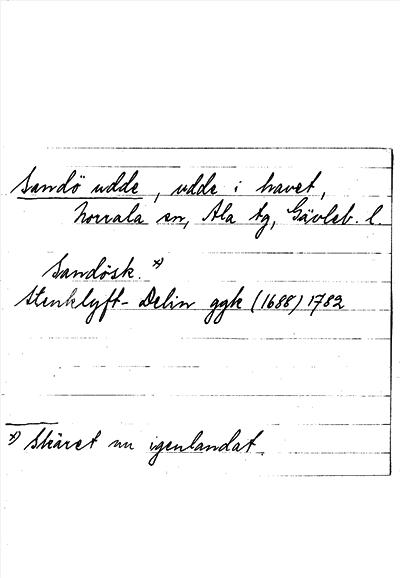 Sandö udde, udde i havet,
Norrala sn, Ala tg, Gävleb. l.
Sandösk. x)
Stenklyft-Delin ggk (1688) 1782
x) Skäret nu igenlandat.